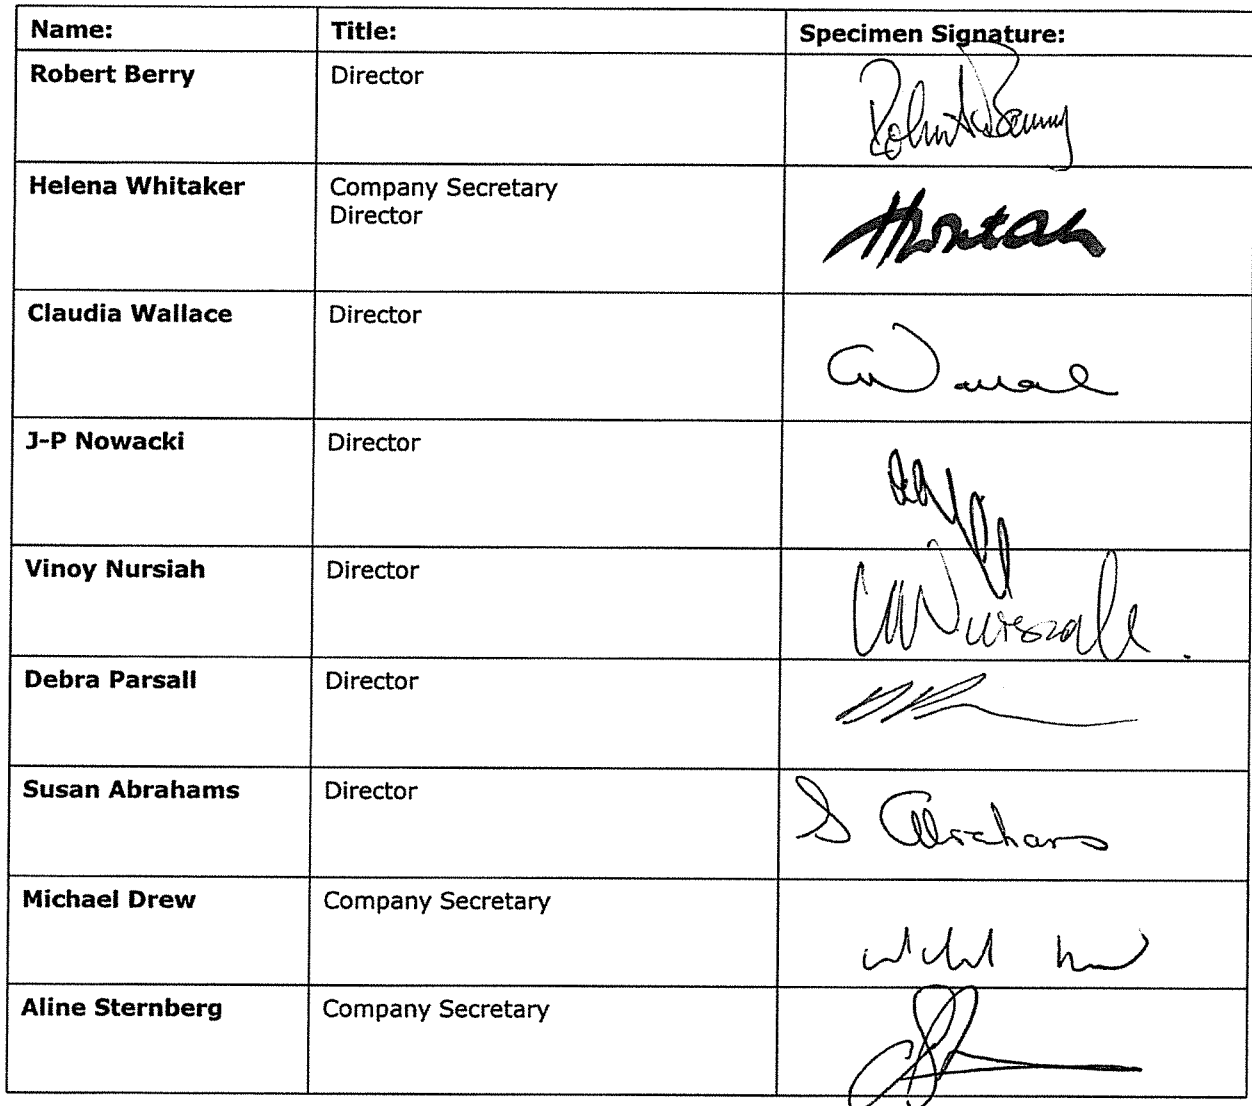 Name: Title: Specimen Signature:
Robert Berry Director
Helena Whitaker Company Secretary
Director
Claudia Wallace Director
J-P Nowacki Director
Vinoy Nursiah Director
Debra Parsall Director
Susan Abrahams Director S Abrahams
Michael Drew Company Secretary
Aline Sternberg Company Secretary